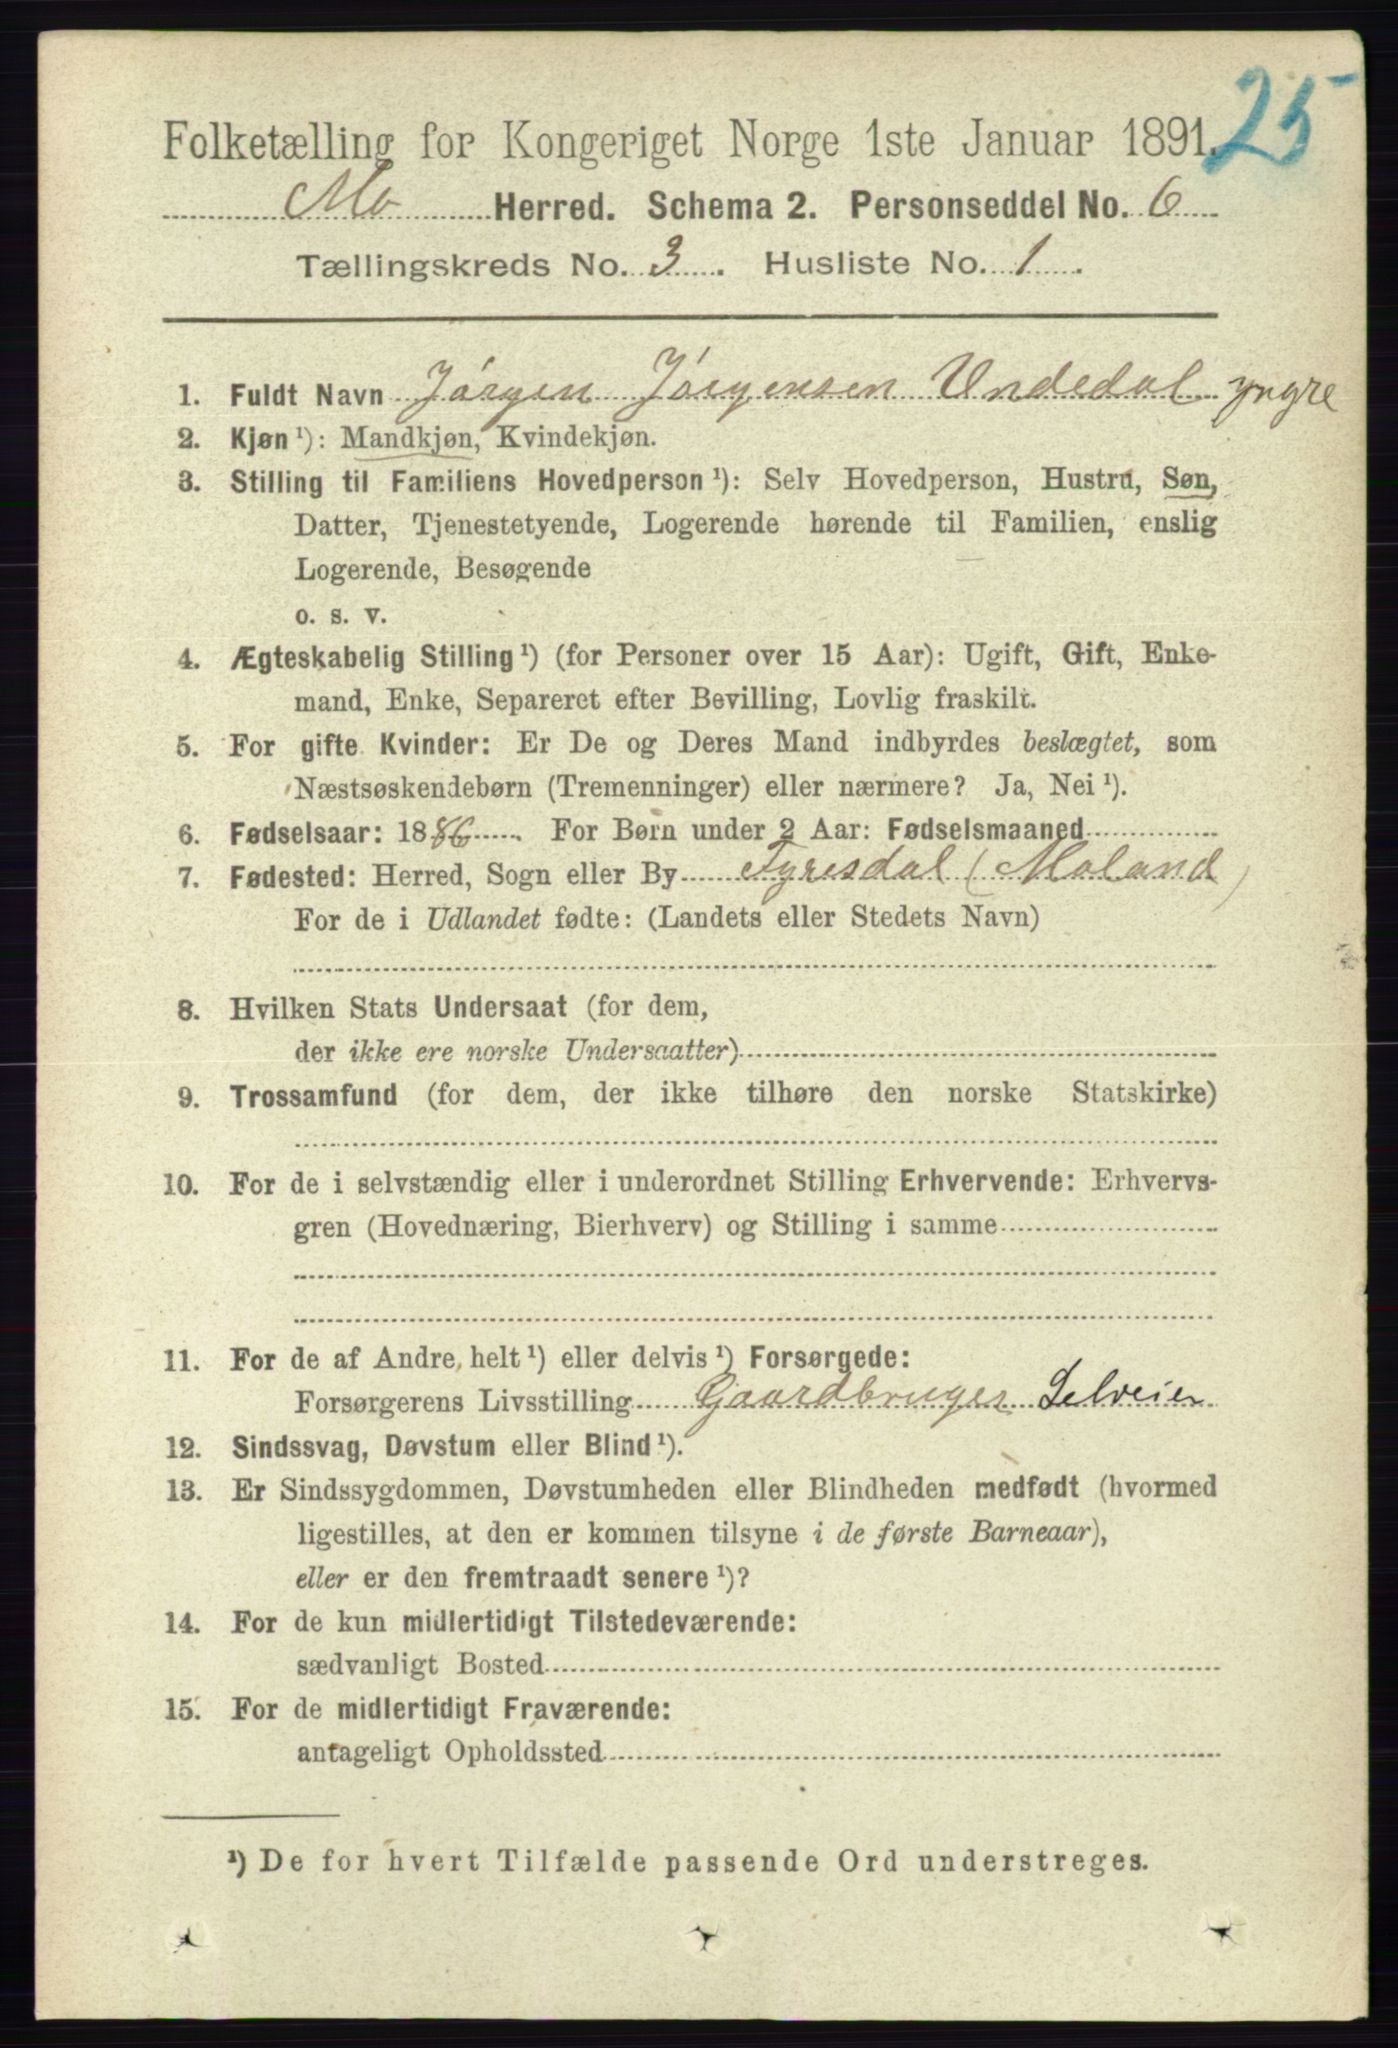 25
Folketælling for Kongeriget Norge 1ste Januar 1891.
Mo Herred. Schema 2. Personseddel No. 6
Tællingskreds No. 3. Husliste No. 1.
1. Fuldt Navn Jórgen Jórgensen Undedal yngre
2. Kjøn ¹): Mandkjøn, Kvindekjøn.
3. Stilling til Familiens Hovedperson ¹): Selv Hovedperson, Hustru, Søn,
Datter, Tjenestetyende, Logerende hørende til Familien, enslig
Logerende, Besøgende
o. s. v.
4. Ægteskabelig Stilling ¹) (for Personer over 15 Aar): Ugift, Gift, Enke-
mand, Enke, Separeret efter Bevilling, Lovlig fraskilt.
5. For gifte Kvinder: Er De og Deres Mand indbyrdes beslægtet, som
Næstsøskendebørn (Tremenninger) eller nærmere? Ja, Nei ¹).
6. Fødselsaar: 1886. For Børn under 2 Aar: Fødselsmaaned
7. Fødested: Herred, Sogn eller By Tyresdal (Moland)
For de i Udlandet fødte: (Landets eller Stedets Navn)
8. Hvilken Stats Undersaat (for dem,
der ikke ere norske Undersaatter)
9. Trossamfund (for dem, der ikke tilhøre den norske Statskirke)
10. For de i selvstændig eller i underordnet Stilling Erhvervende: Erhvervs-
gren (Hovednæring, Bierhverv) og Stilling i samme
11. For de af Andre, helt ¹) eller delvis ¹) Forsørgede:
Forsørgerens Livsstilling Gaardbruger Selveier
12. Sindssvag, Døvstum eller Blind ¹).
13. Er Sindssygdommen, Døvstumheden eller Blindheden medfødt (hvormed
ligestilles, at den er kommen tilsyne i de første Barneaar),
eller er den fremtraadt senere ¹)?
14. For de kun midlertidigt Tilstedeværende:
sædvanligt Bosted
15. For de midlertidigt Fraværende:
antageligt Opholdssted
¹) De for hvert Tilfælde passende Ord understreges.